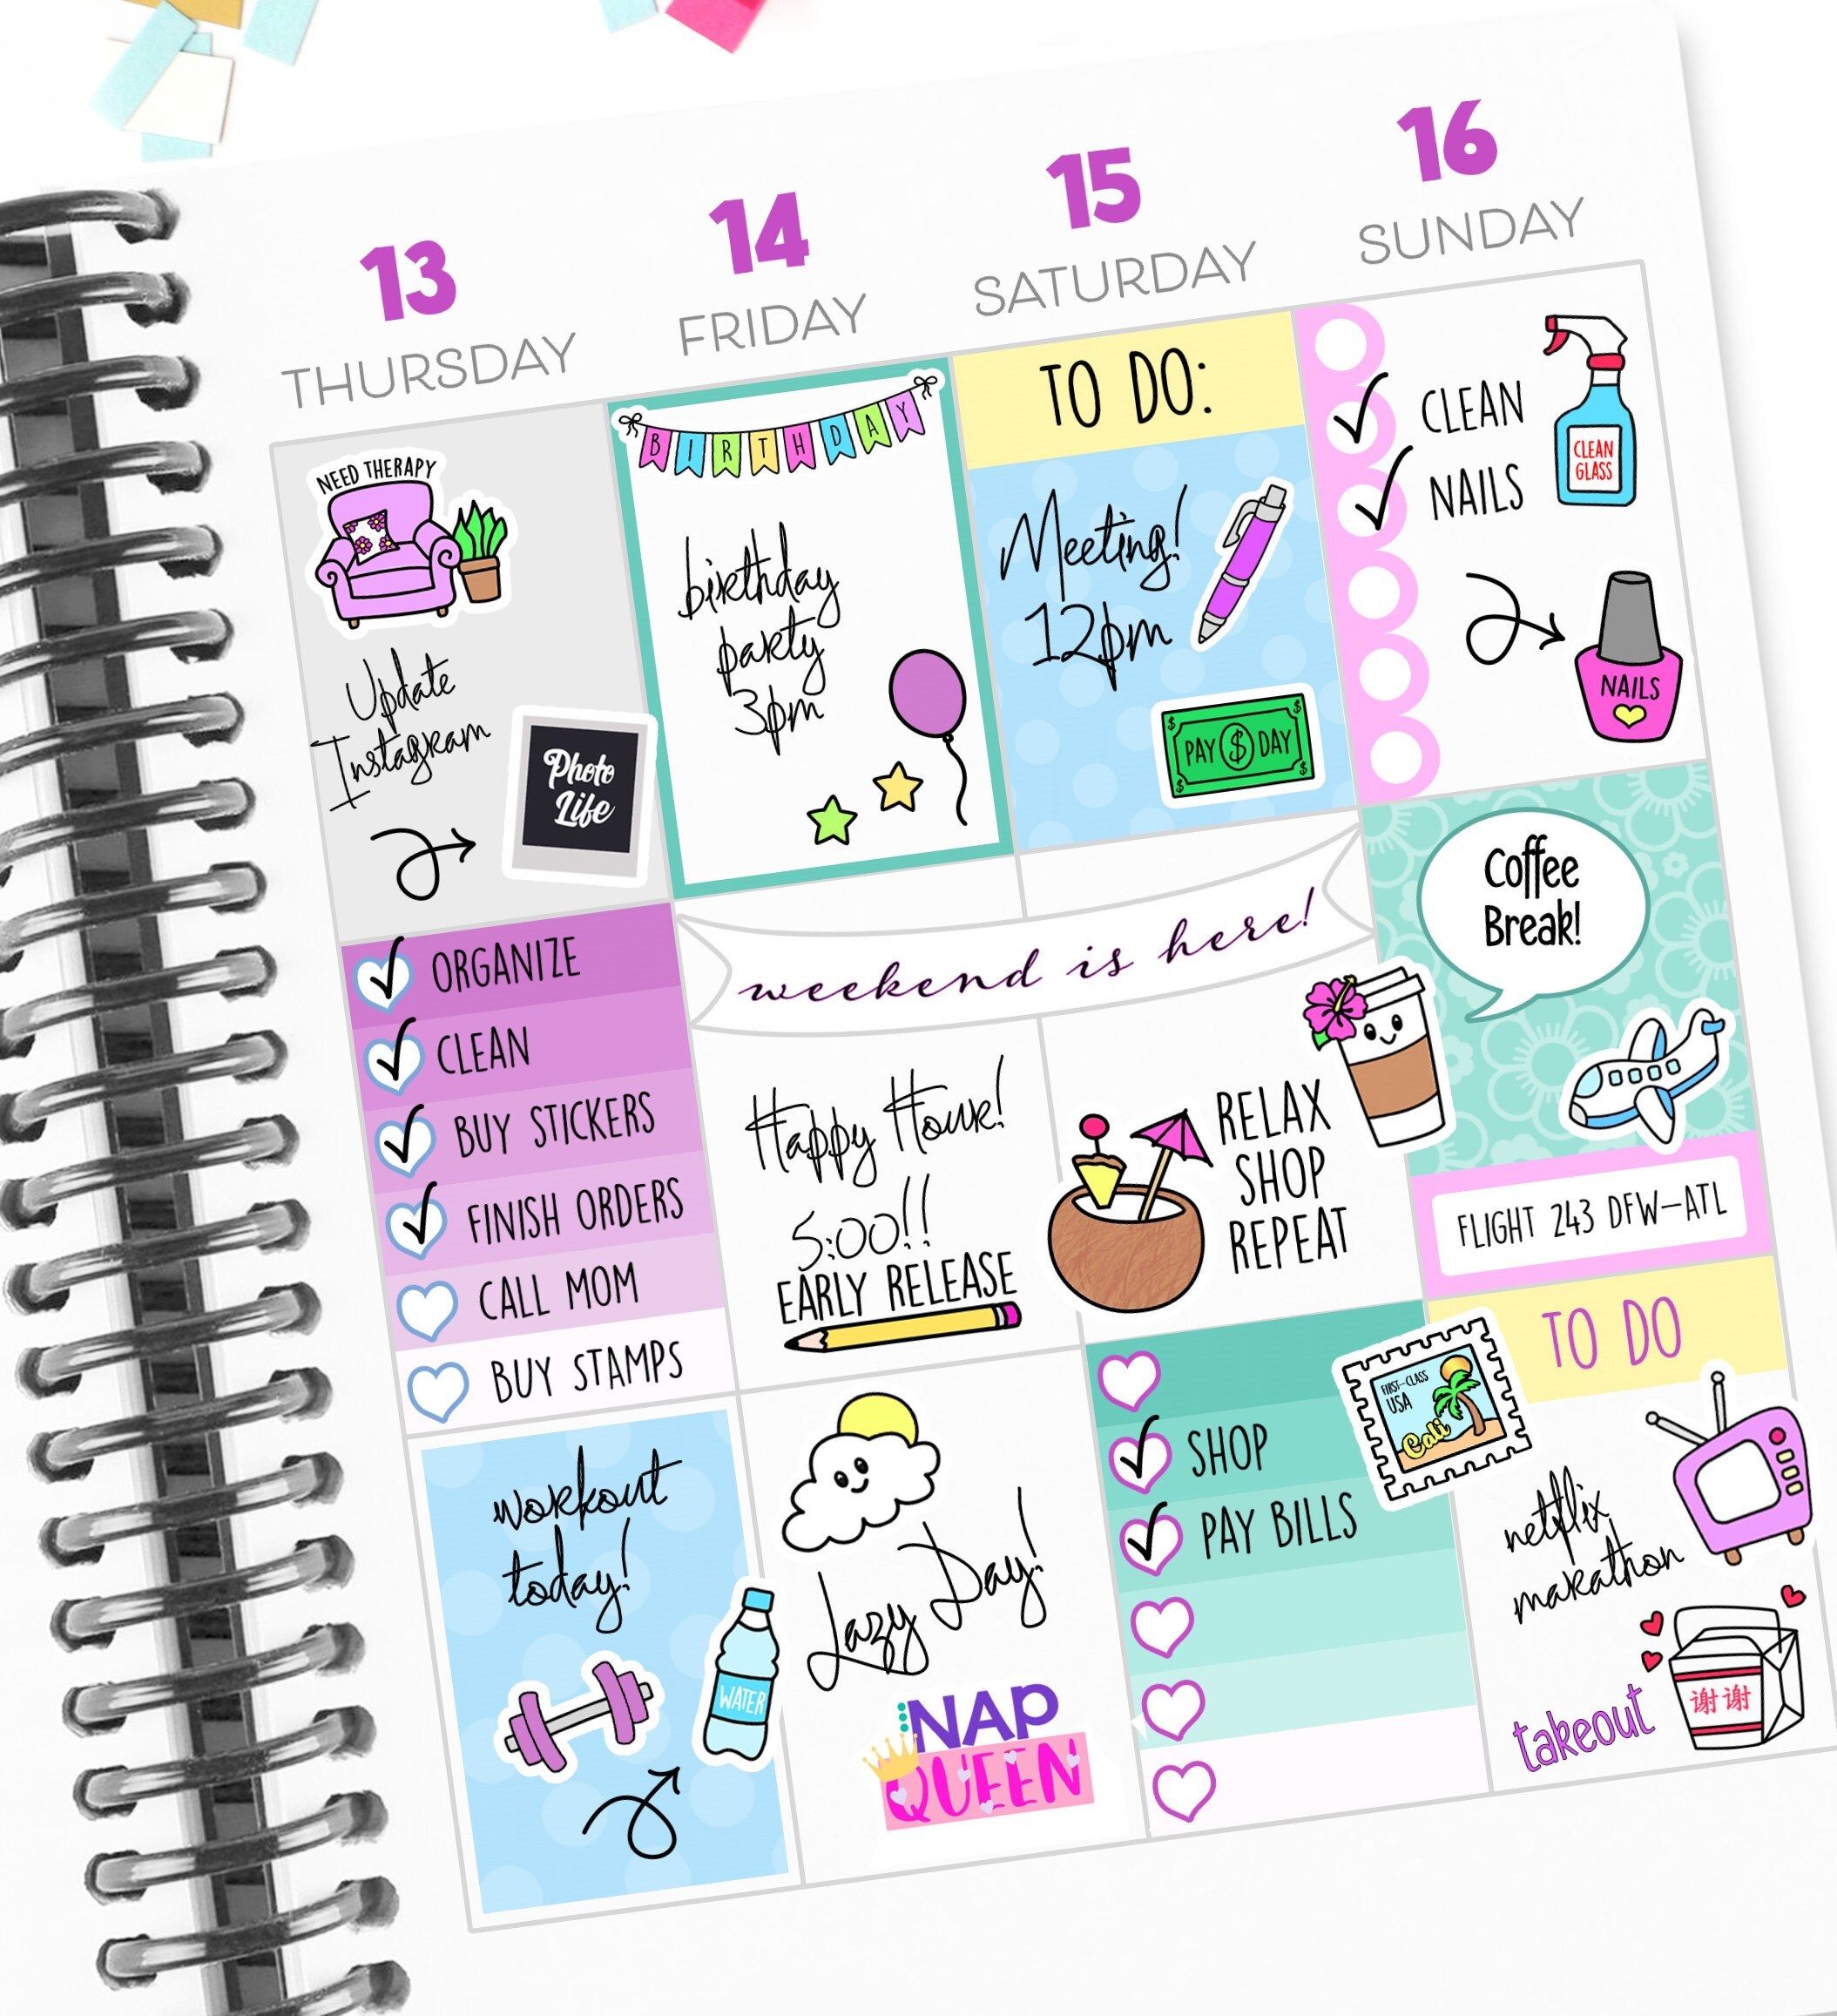 13
THURSDAY
NEED THERAPY
Update
Instagram
Photo
Life
ORGANIZE
CLEAN
BUY STICKERS
FINISH ORDERS
CALL MOM
BUY STAMPS
workout
today!
WATER
14
FRIDAY
BIRTHDAY
birthday
party
3pm
weekend is here!
Happy Hour!
5:00!!
EARLY RELEASE
Lazy Day!
NAP
QUEEN
15
SATURDAY
TO DO:
Meeting!
12pm
PAY $ DAY
RELAX
SHOP
REPEAT
SHOP
PAY BILLS
FIRST-CLASS
USA
Cali
16
SUNDAY
CLEAN
NAILS
CLEAN
GLASS
NAILS
Coffee
Break!
FLIGHT 243 DFW-ATL
TO DO
netflix
marathon
takeout
谢谢